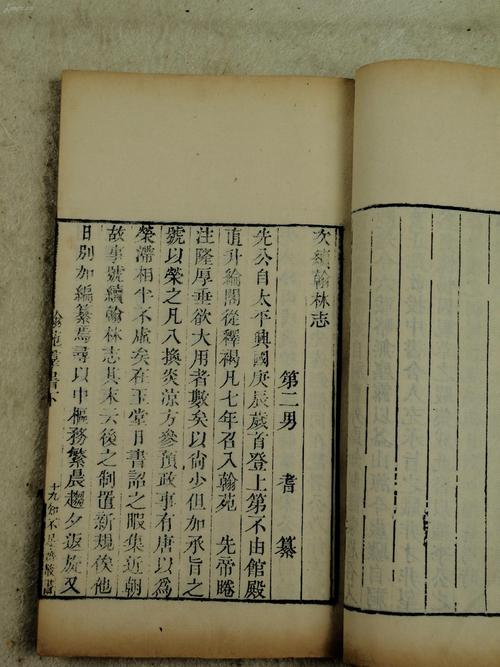 次續翰林志
第二男 耆 纂
先公自太平興國庚辰歲首登上第不由館殿
直升綸閣從釋褐凡七年召入翰苑 先帝睠
注隆厚垂欲大用者數矣以尙少但加承旨之
號以榮之凡八換炎涼方參預政事有唐以爲
榮滯相半不虛矣在玉堂日書詔之暇集近朝
故事號續翰林志其末云後之制置新規俟他
日別加編纂焉尋以中樞務繁晨趨夕返旋又
翰苑羣書下
十九 知不足齋叢書